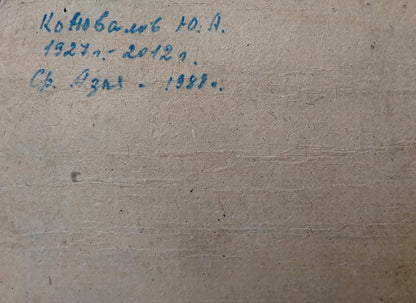 Коновалов Ю. А.
1927г.-2012г.
Ср. Азия - 1988г.